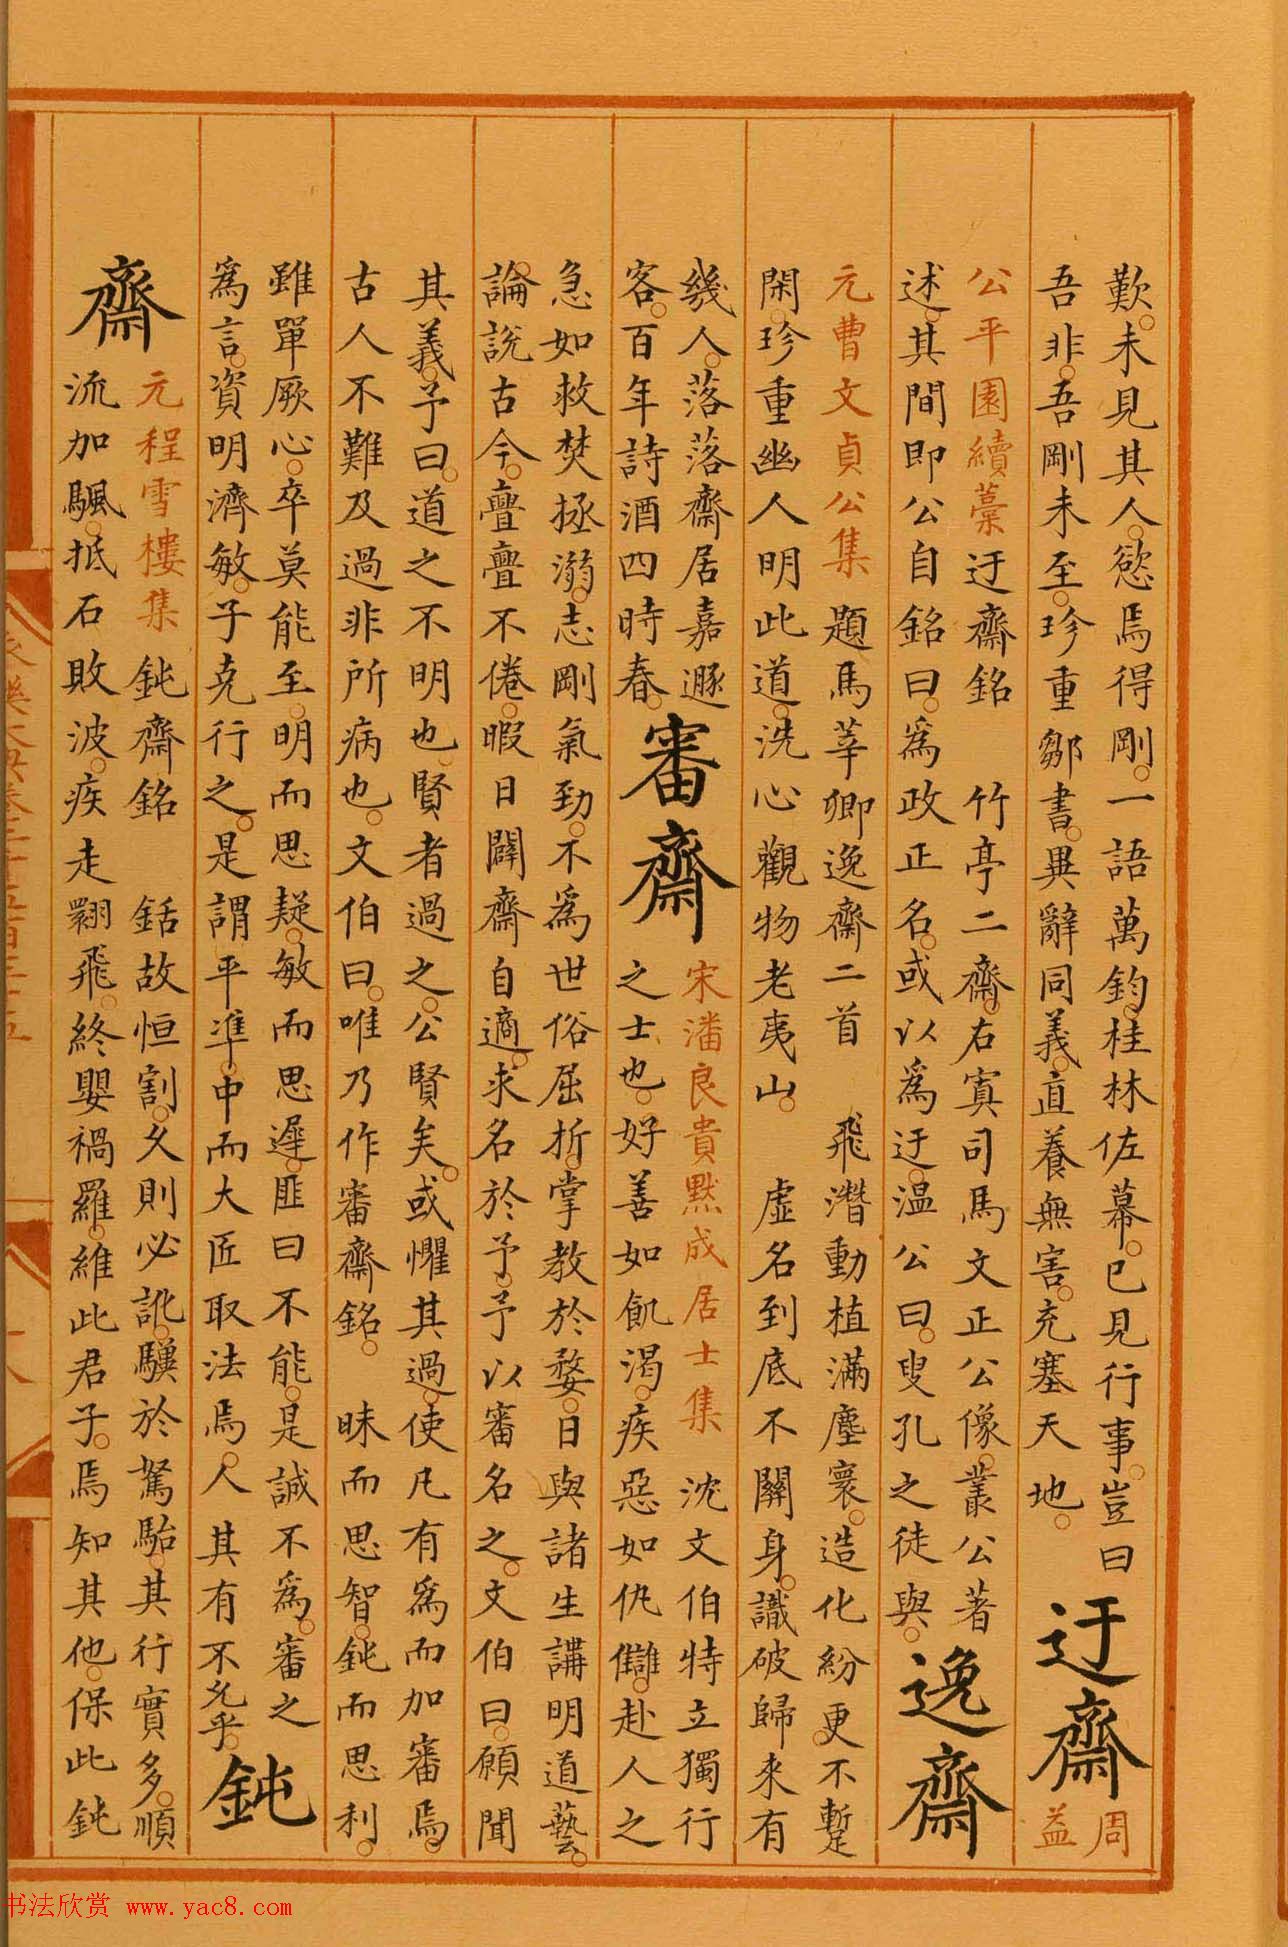 歎。未見其人。慾焉得剛。一語萬鈞。桂林佐幕。已見行事。豈曰
吾非。吾剛未至。珍重鄒書。異辭同義。直養無害。充塞天地。
迂齋
周
益
公平園續藁
迂齋銘 竹亭二齋。右寘司馬文正公像。叢公著
述。其間即公自銘曰。為政正名。或以為迂。溫公曰。叟孔之徒與。
逸齋
元曹文貞公集
題馬莘卿逸齋二首 飛潛動植滿塵寰。造化紛更不暫
閑。珍重幽人明此道。洗心觀物老夷山。 虛名到底不關身。識破歸來有
幾人。落落齋居嘉遯
客。百年詩酒四時春。
審齋
宋潘良貴默成居士集
沈文伯特立獨行
之士也。好善如飢渴。疾惡如仇讎。赴人之
急如救焚拯溺。志剛氣勁。不為世俗屈折。掌教於婺。日與諸生講明道藝。
論說古今。亹亹不倦。暇日闢齋自適。求名於予。予以審名之。文伯曰。願聞
其義。予曰。道之不明也。賢者過之。公賢矣。或懼其過。使凡有為而加審焉。
古人不難及過非所病也。文伯曰。唯乃作審齋銘。 昧而思智。鈍而思利。
雖單厥心。卒莫能至。明而思疑。敏而思遲。匪曰不能。是誠不為。審之
為言。資明濟敏。子克行之。是謂平準。中而大匠取法焉。人其有不允乎。
鈍
齋
元程雪樓集
鈍齋銘 銛故恒割。久則必訛。驥於駑駘。其行實多。順
流加颿。抵石敗波。疾走翾飛。終嬰禍羅。維此君子。焉知其他。保此鈍
书法欣赏 www.yac8.com